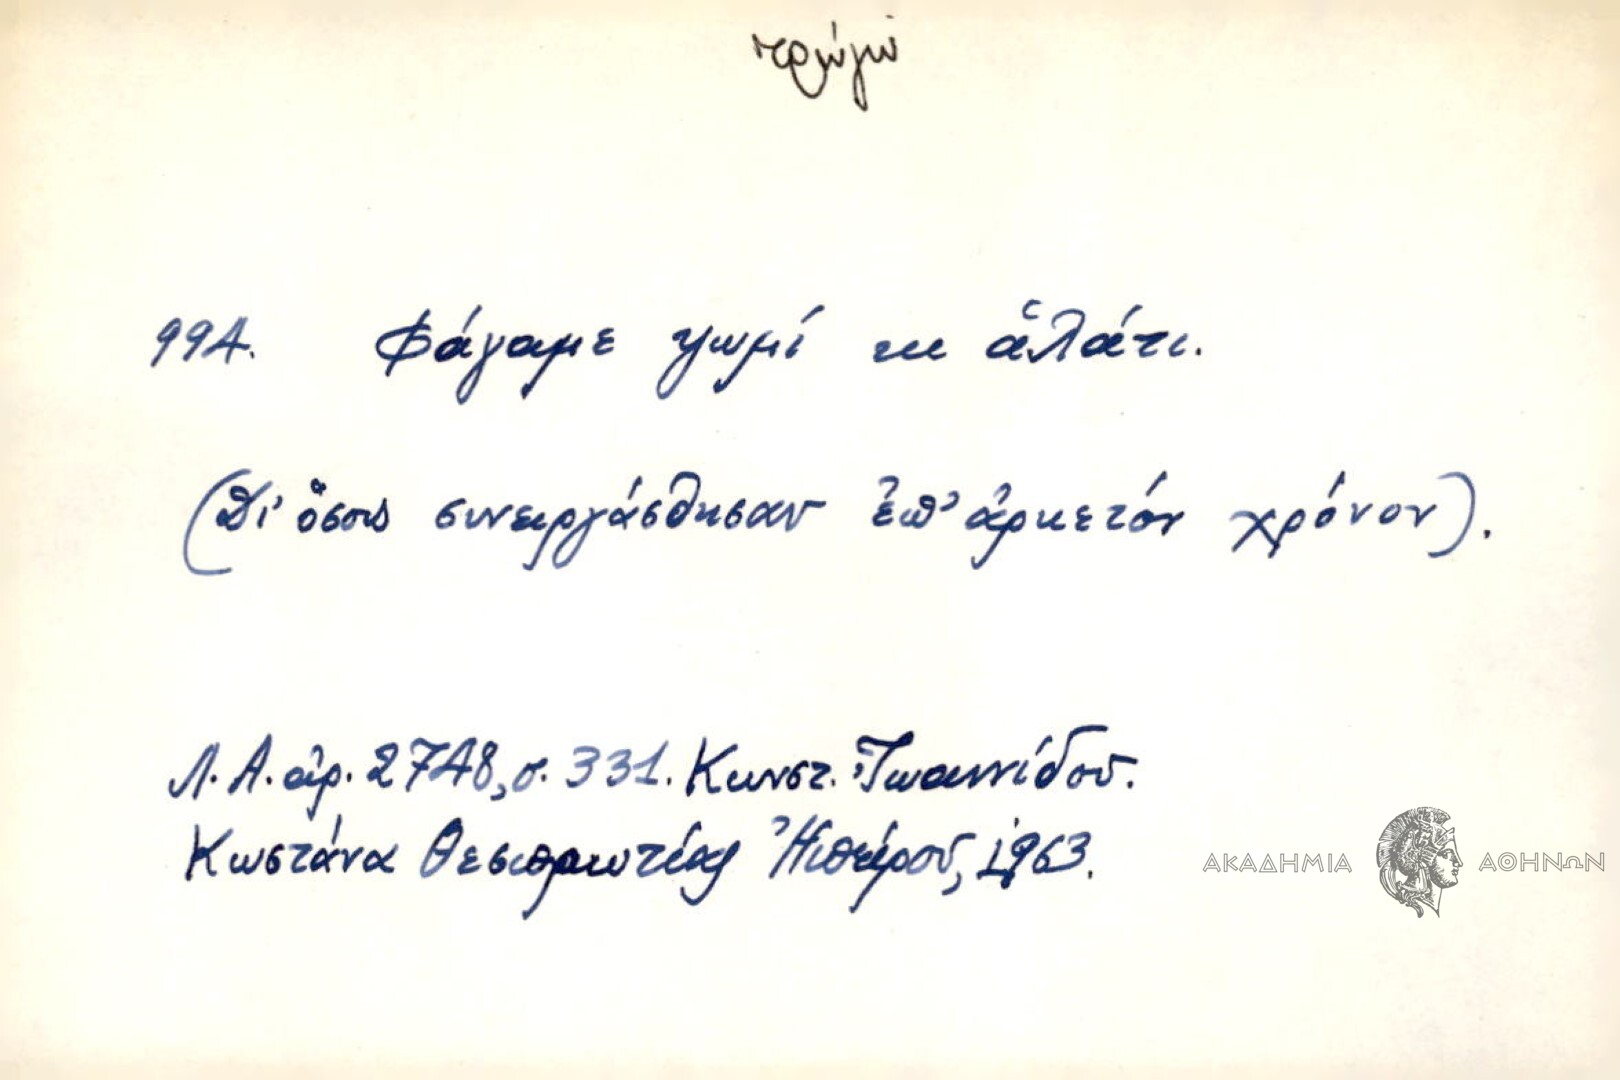 τρώγω
994. Φάγαμε ψωμί κι ἁλάτι.
(Δι' ὅσους συνειργάσθησαν ἐπ' ἀρκετόν χρόνον).
Λ.Α. ἀρ. 2748, σ. 331. Κωνστ. Ἰωαννίδου.
Κωστάνα Θεσπρωτίας Ἠπείρου, 1963.
ΑΚΑΔΗΜΙΑ ΑΘΗΝΩΝ